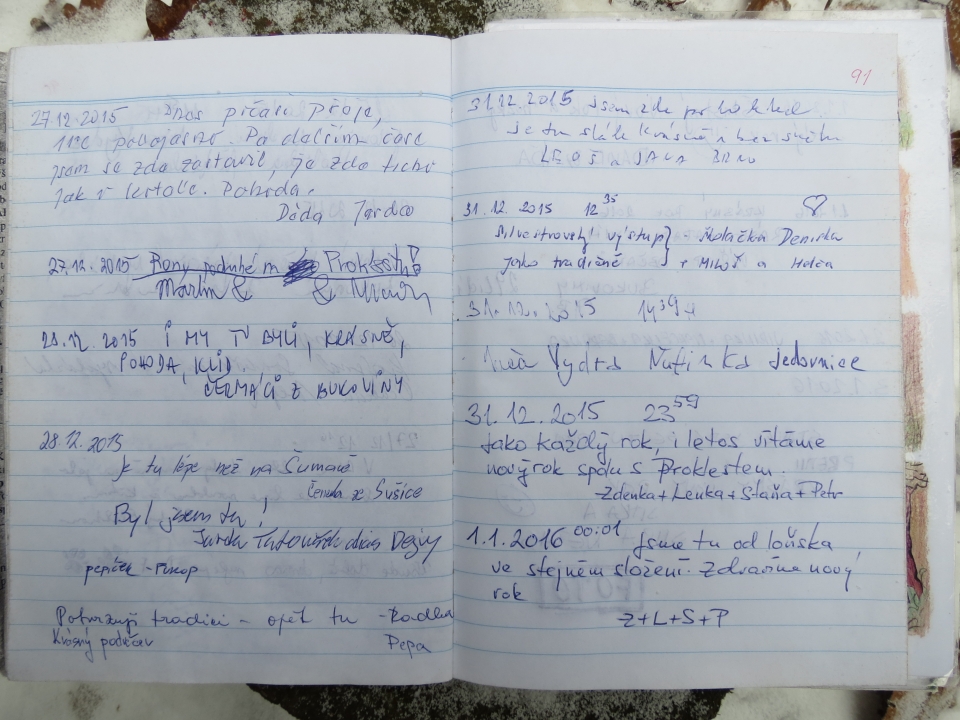 27.12.2015 Dnes ptáčci pějí,
vše pohojasné. Po dalším čase
jsem se zde zastavil, je zde ticho
jak v kostele. Pohoda.
Děda Jarda
27.12.2015 Rony podruhé m Proklestu
Martin & &
28.12.2015 I MY TU BYLI, KRÁSNĚ,
POHODA, KLID,
ČERMÁCI Z BUKOVINY
28.12.2015
je tu lépe než na Šumavě
Čenda ze Sušice
Byl jsem tu!
Jarda
pepíček - Prokop
Potvrzuji tradici - opět tu - Radka
Krásný podvečer Pepa
91
31.12.2015 jsem zde po
je tu stále krásně a bez sněhu
LEOŠ a JANA BRNO
31.12.2015 12 35
Silvestrovský výstup} - školačka Deniska
jako tradičně + Miloš a Helča
31.12.2015 14 39
Vydra Jedovnice
31.12.2015 23 59
Jako každý rok, i letos vítáme
nový rok spolu s Proklestem.
Zdenka + Lenka + Staňa + Petr
1.1.2016 00:01 Jsme tu od loňska,
ve stejném složení. Zdravíme nový
rok
Z+L+S+P